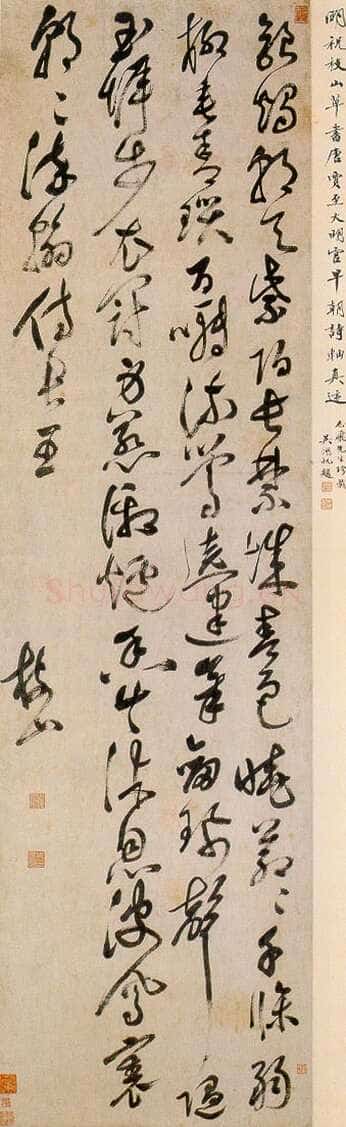 明祝枝山草書唐賈至大明宮早朝詩軸真迹
銀燭朝天紫陌長禁城春色曉蒼〻千條弱
柳垂青瑣百囀流鶯遶建章劍珮聲隨
玉墀步衣冠身惹御爐香共沐恩波鳳裏
朝〻染翰侍君王
枝山